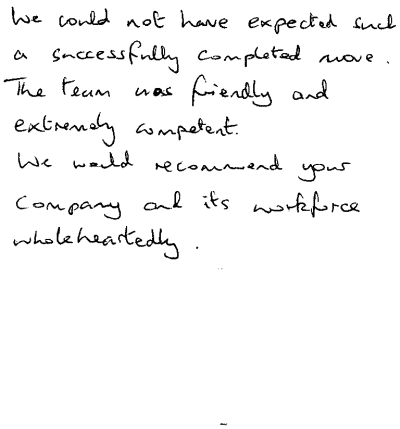 We could not have expected such
a successfully completed move.
The team was friendly and
extremely competent.
We would recommend your
Company and its workforce
wholeheartedly.